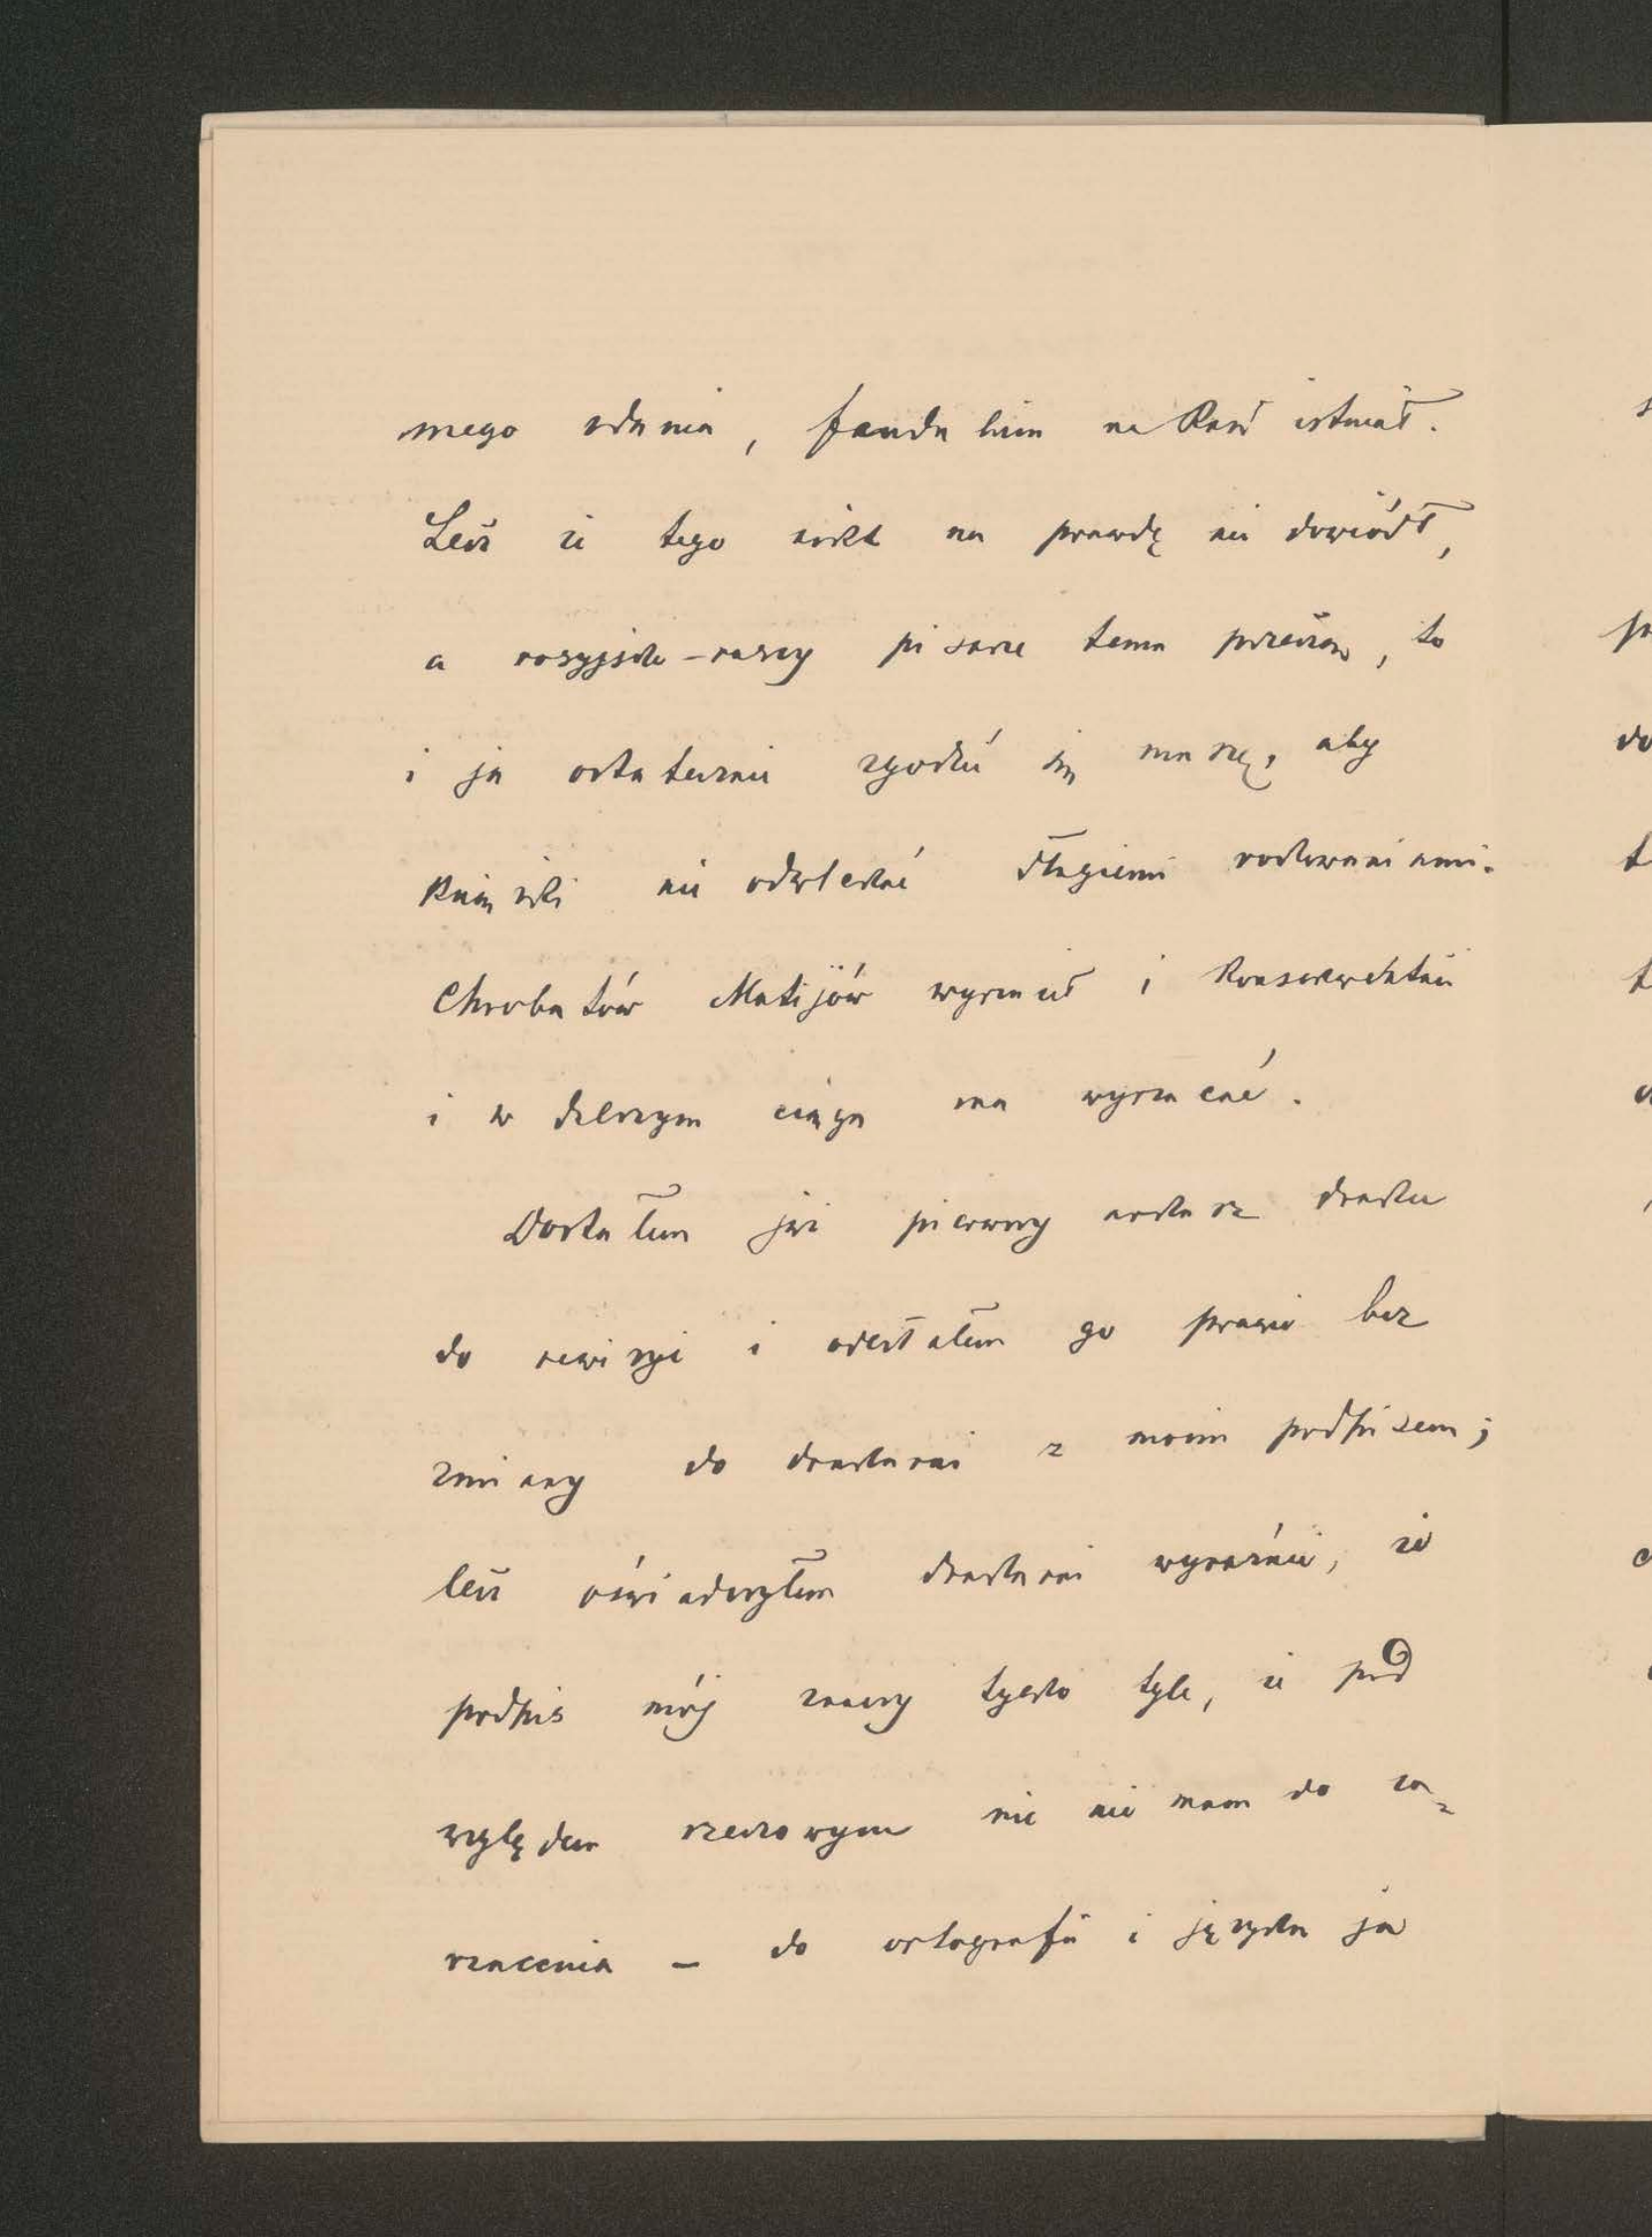 mego zdania, feudalizm na Rusi istniał.
Lecz że tego nikt na prawdę nie dowiódł,
a rosyjsko-ruscy pisarze temu przeczą, to
i ja ostatecznie zgodzić się muszę, aby
książki nie odwlekać długiemi rokowaniami.
Chrobatów Matijów wyrzucił i konsekwentnie
i w dalszym ciągu ma wyrzucać.
Dostałem już pierwszy arkusz druku
do rewizyi i odesłałem go prawie bez
zmiany do drukarni z moim podpisem;
lecz oświadczyłem drukarni wyraźnie, że
podpis mój znaczy tylko tyle, że pod
względem rzeczowym nic nie mam do za-
rzucenia – do ortografii i języka ja